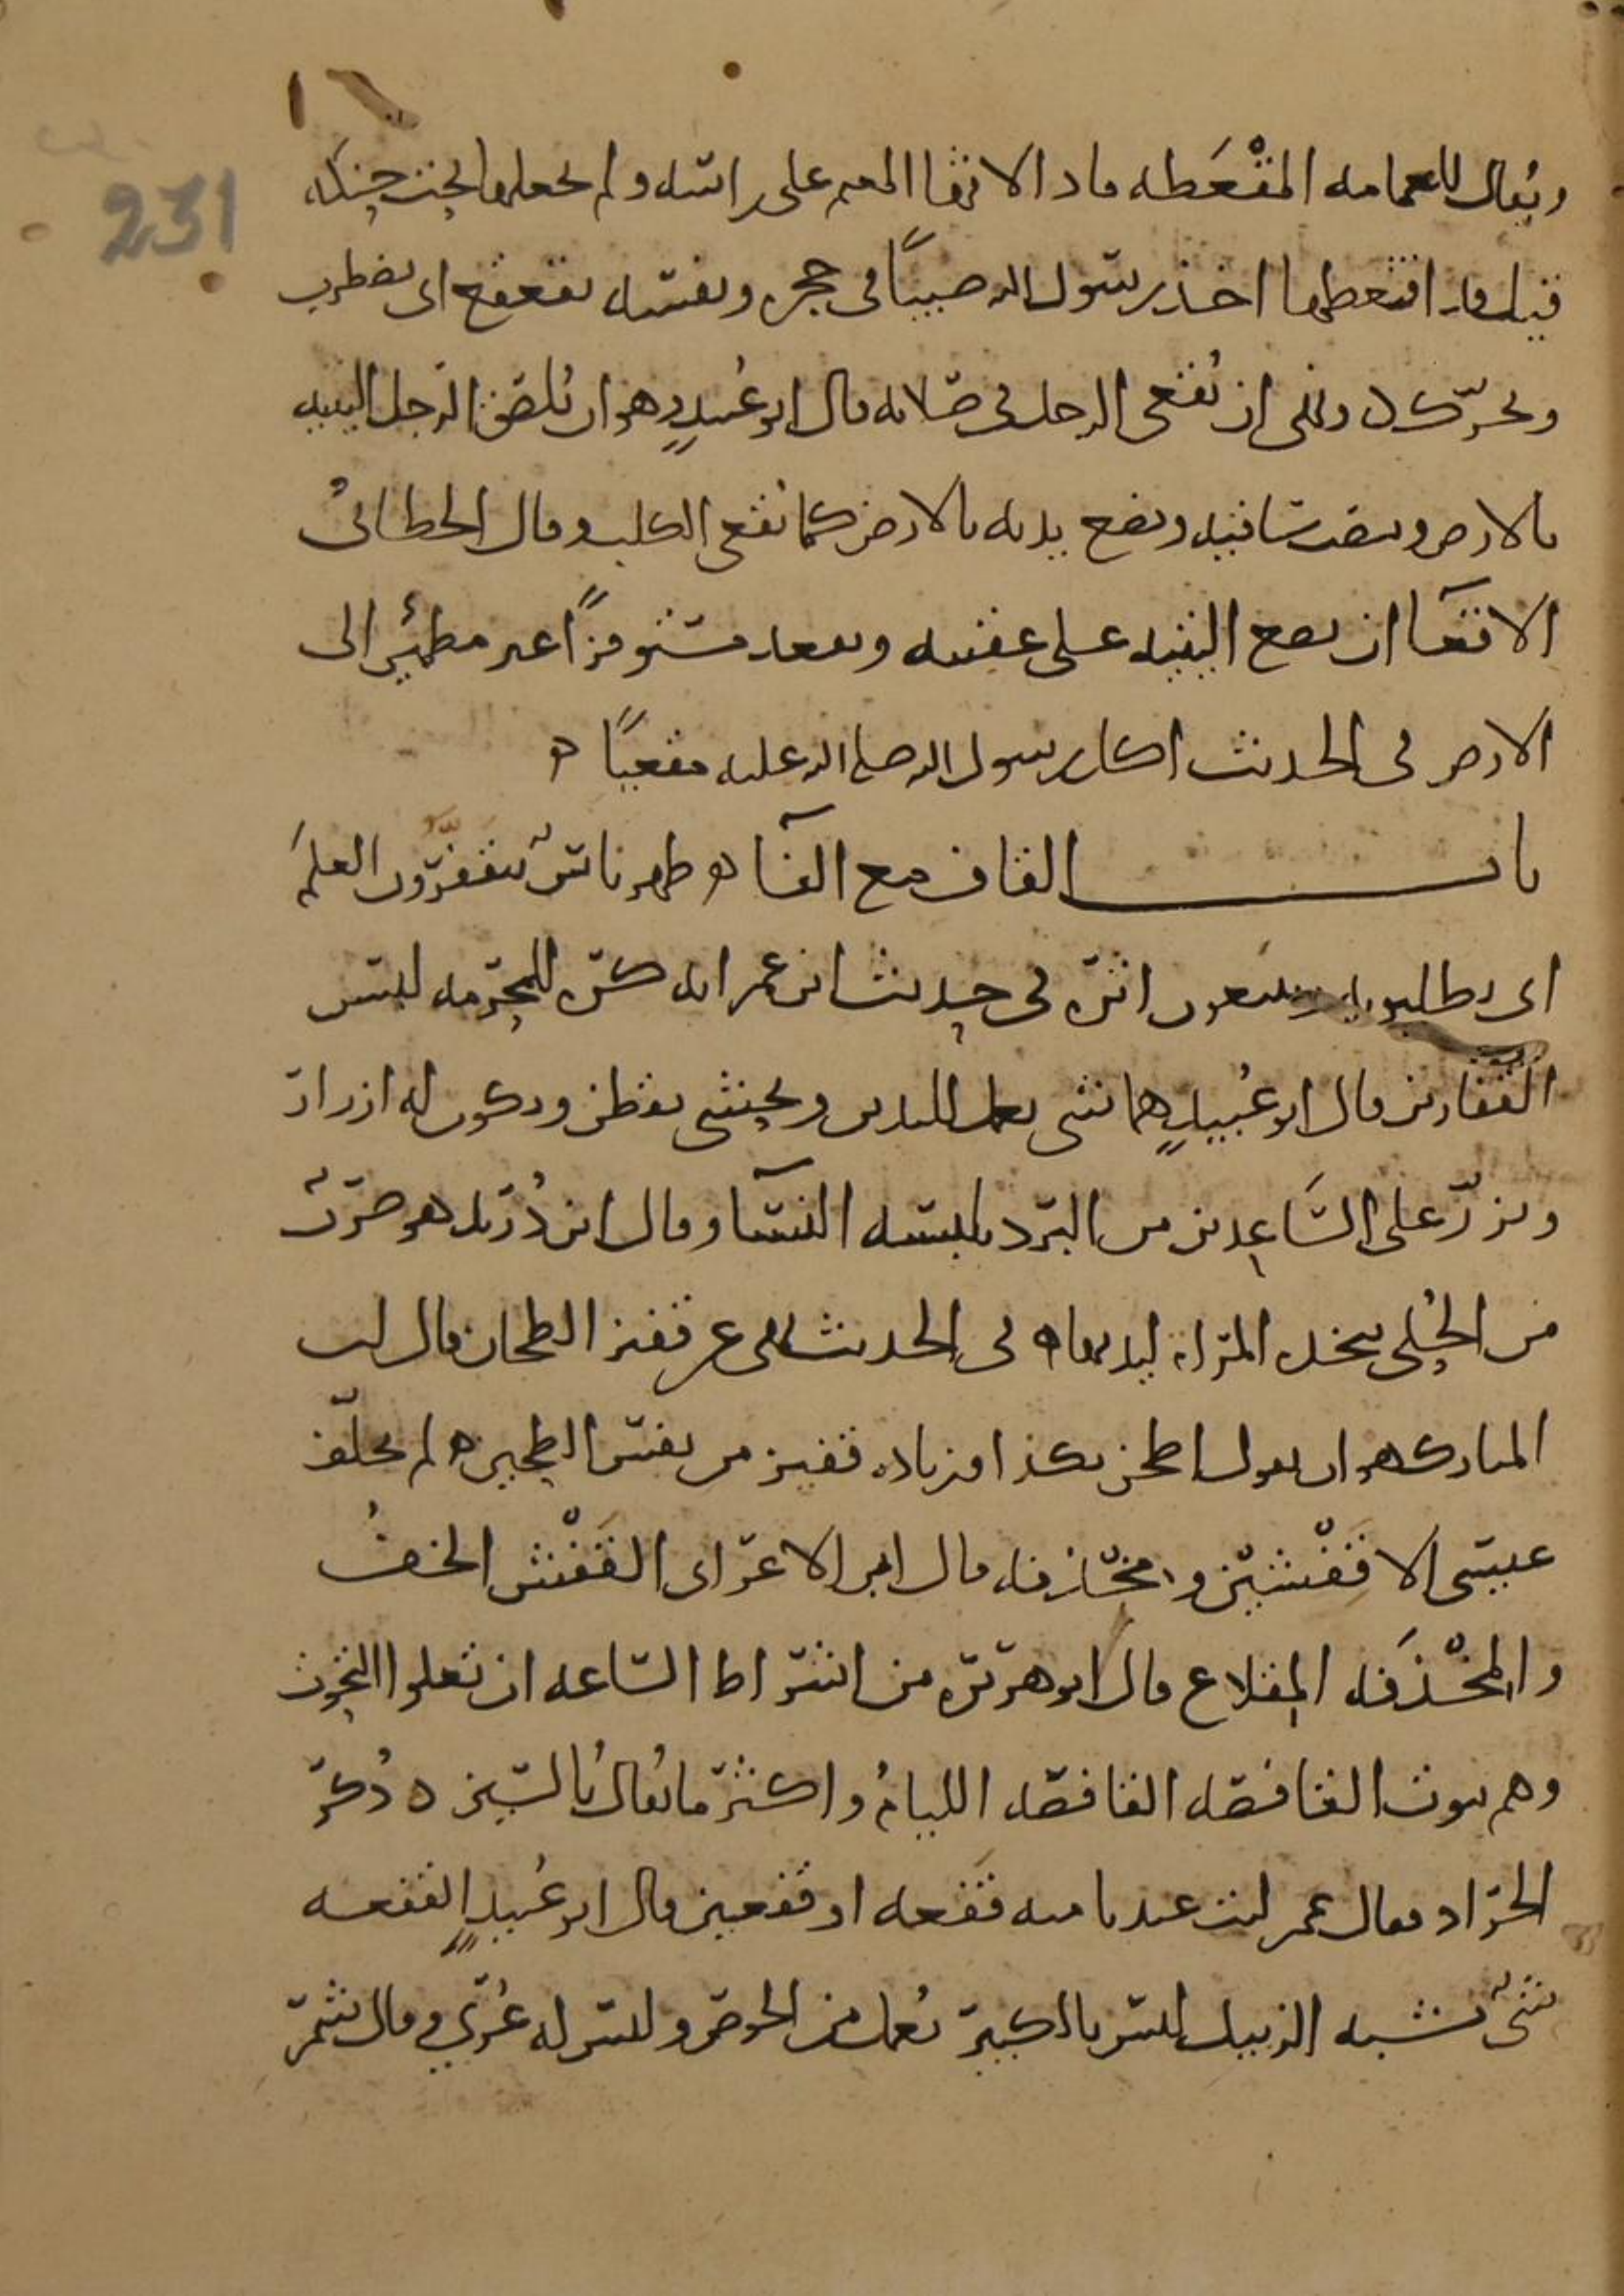 231
ويقال للعمامه المقْعَطه فاذا لاثها المعم على راسه ولم يجعلها تحت حنكه
قيل قد اقتعطها اخذ رسول الله صبيًا في حجره ونفسه تقعقع اي تضطرب
وتحرّك ه ونهى ان يُقعى الرجل في صلاته قال ابو عُبيدٍ وهو ان يُلصق الرجل اليتيه
بالارض وينصب ساقيه ويضع يديه بالارض كما يُقعي الكلب وقال الخطابيُ
الاقعآ ان يضع اليتيه على عقبيه ويقعد مستوفزًا غير مطمئن الى
الارض في الحديث اكل رسول الله صلى الله عليه مقعيًا ه
باب القاف مع الفآ ه ظهر ناسٌ يتقفّرون العلمَ
اي يطلبونه ويتبعون اثره في حديث ابن عمر انه كره للمحرمه لبس
القفازين قال ابو عُبيدٍ هما شي يعمل لليدين ويحشى بقطن ويكون له ازرار
ويزرّ على السَاعِدين من البرد يلبسه النسآ وقال ابن دُريد هو ضربٌ
من الحُلي تتخذه المراه ليديها ه في الحديث نهي عن قفيز الطحان قال ابن
المبارك هو ان يقول اطحن بكذا وزياده قفيز من نفس الطحين ه لم يخلّف
عيسى الا قَفْشَيْن ومِخْذفه قال ابن الاعرابي القَفْش الخفُ
والمِخْذَفه المِقلاع قال ابو هريره من اشراط الساعه ان تعلوا التحوت
وهم بيوت القافصه القافصه اللِئامُ واكثر ما يُقالُ بالسين ه ذُكر
الجراد فقال عمر ليت عندنا منه قَفْعه او قفعتين قال ابو عُبيدٍ القفعه
شيٌ يشبه الزبيل ليس بالكبير يُعمل من الخوص وليس له عُرًى وقال شمر